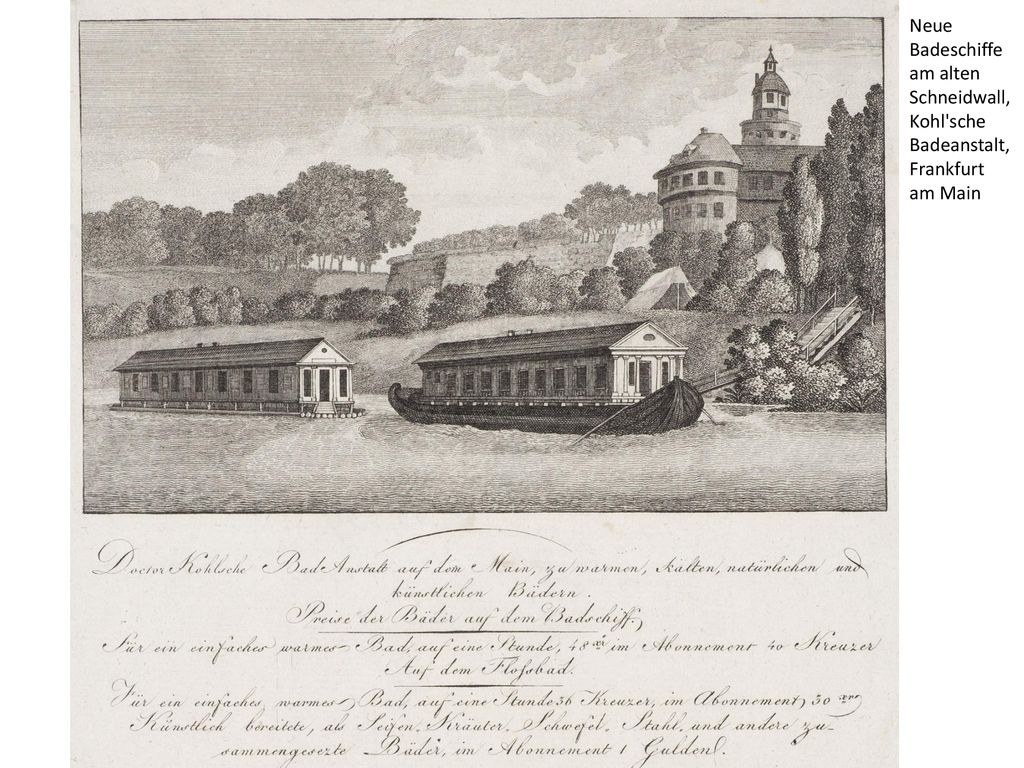 Neue
Badeschiffe
am alten
Schneidwall,
Kohl'sche
Badeanstalt,
Frankfurt
am Main
Doctor Kohlsche Bad Anstalt auf dem Main, zu warmen, kalten, natürlichen und
künstlichen Bädern.
Preise der Bäder auf dem Badschiff.
Für ein einfaches warmes Bad, auf eine Stunde, 48 xr im Abonnement 40 Kreuzer
Auf dem Flofsbad.
Für ein einfaches, warmes Bad, auf eine Stunde 36 Kreuzer, im Abonnement, 30 xr
Künstlich bereitete, als Seifen, Kräuter, Schwefel, Stahl, und andere zu-
sammengesezte Bäder, im Abonnement 1 Gulden.